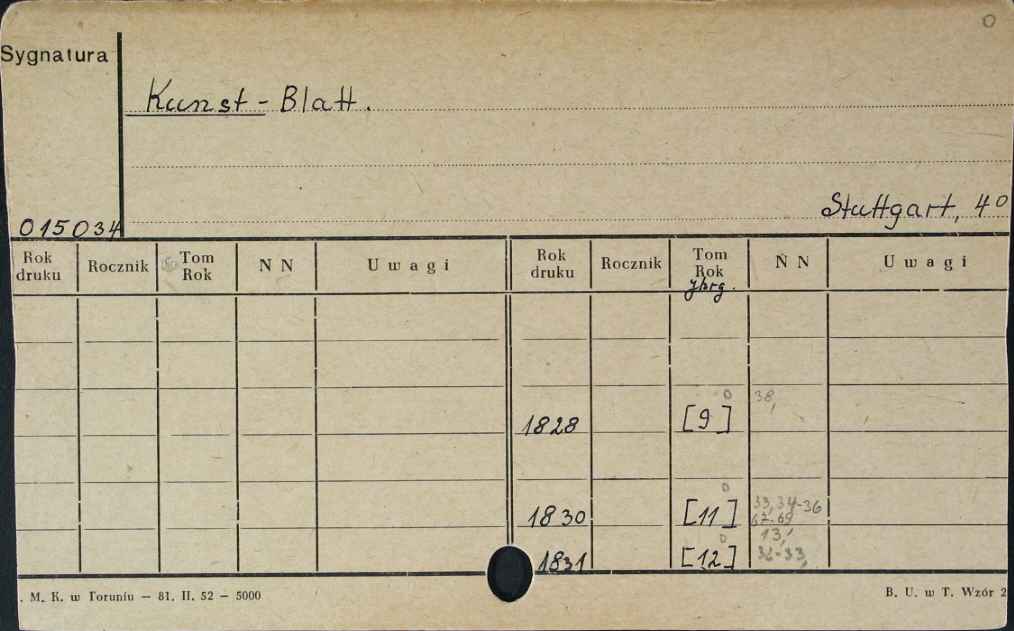 0
Sygnatura
Kunst-Blatt.
Stuttgart, 40
015034
Rok druku Rocznik Tom Rok N N Uwagi Rok druku Rocznik Tom Rok Jhrg. N N Uwagi
0 38,
1828 [9]
0 33, 34-36
1830 [11] 67-69
0 13,
1831 [12]
. M. K. w Toruniu — 81. II. 52 — 5000 B. U. w T. Wzór 2